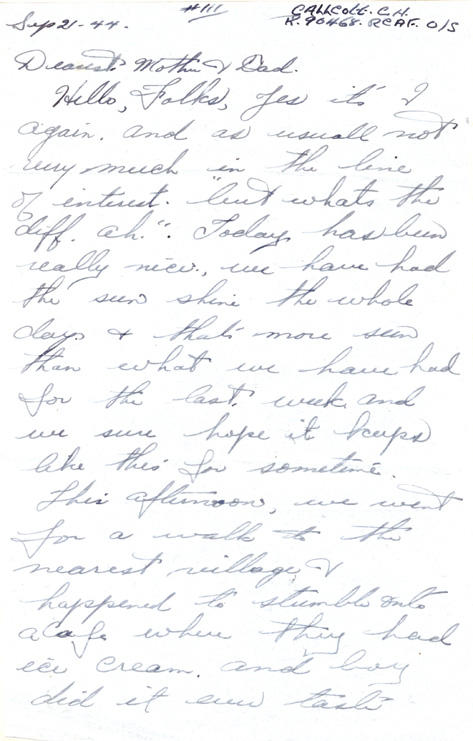 Sep 21-44. #111 CALLCOTT. C.H.
R.90468. RCAF. O/S
Dearest Mother & Dad.
Hello, Folks, Yes it's I
again. and as usuall not
very much in the line
of interest. "but whats the
diff. ah.". Today, has been
really nice., we have had
the sun shine the whole
day. & that's more sun
than what we have had
for the last. week. and
we sure hope it keeps
like this for sometime.
This afternoon, we went
for a walk to the
nearest village, &
happened to stumble onto
a Cafe where they had
ice cream. and boy
did it ever taste